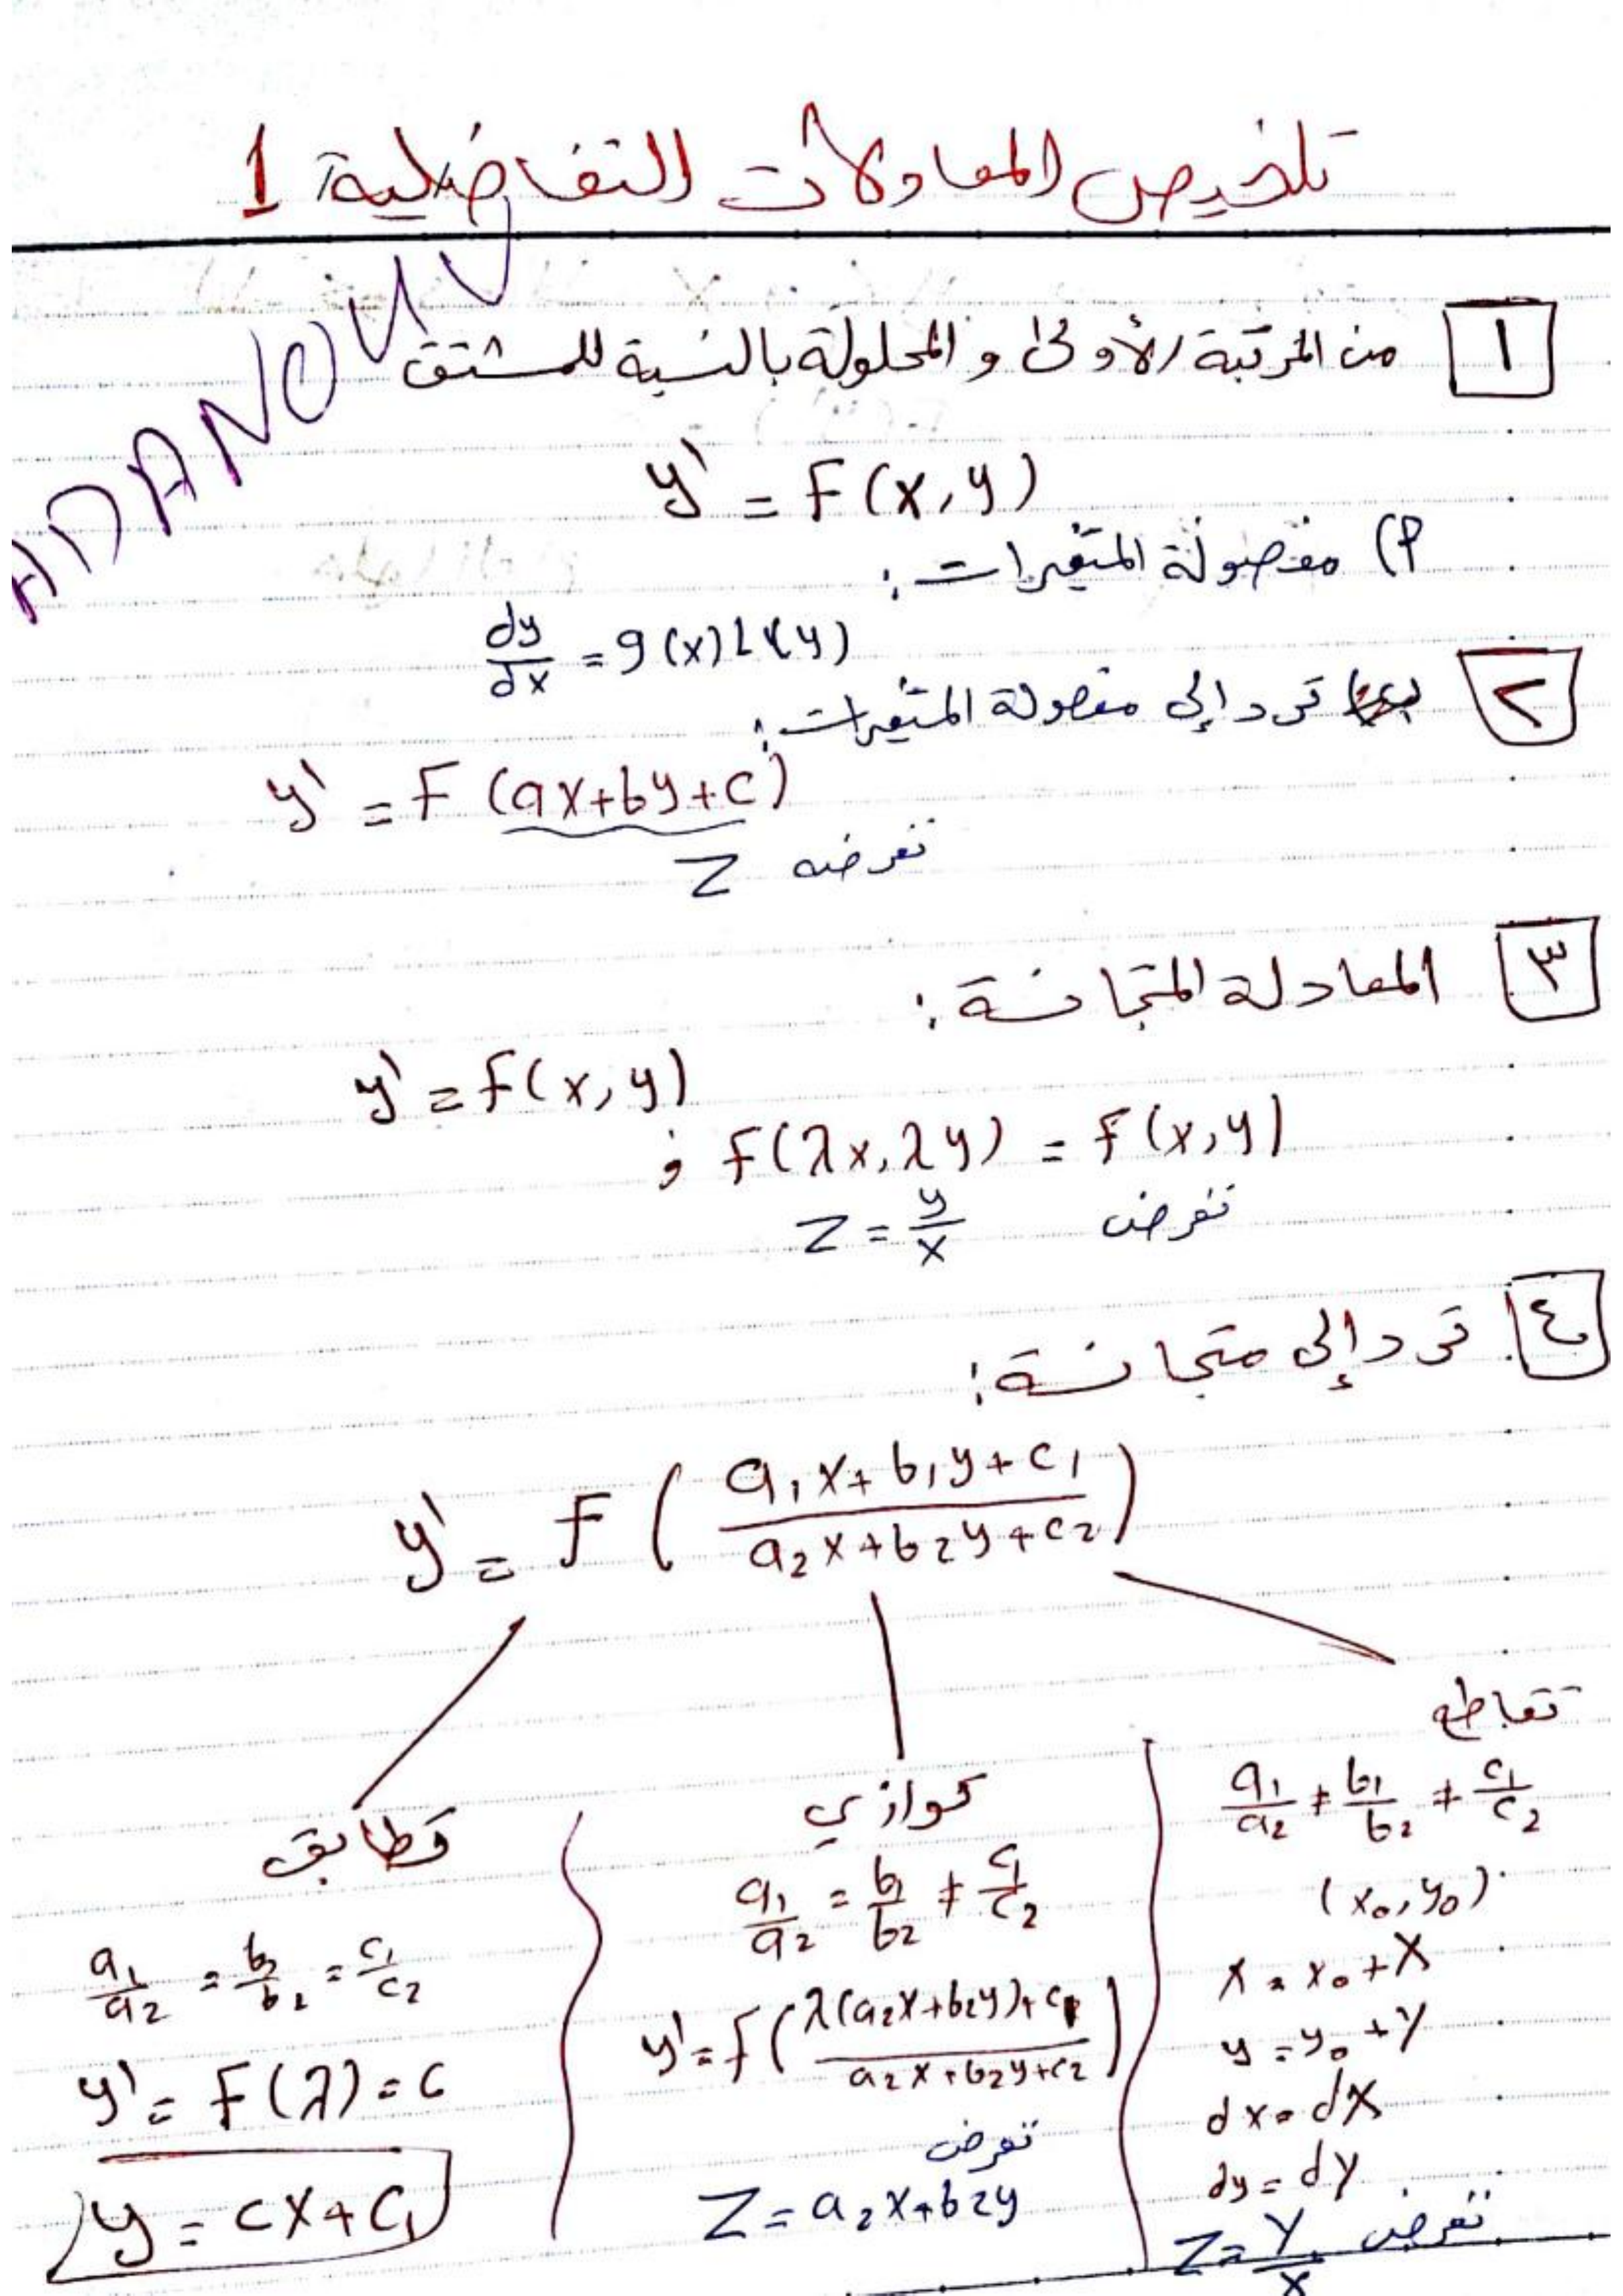 تلخيص المعادلات التفاضلية 1
HADANOUV
١ من المرتبة الأولى و المحلولة بالنسبة للمشتق
y' = F(x,y)
أ) مفصولة المتغيرات:
dy/dx = g(x)h(y)
٢ ترد إلى مفصولة المتغيرات:
y' = F(ax+by+c)
نفرضه Z
٣ المعادلة المتجانسة:
y' = f(x,y)
; f(λx,λy) = f(x,y)
نفرض Z = y/x
٤ ترد إلى متجانسة:
y' = F((a₁x+b₁y+c₁)/(a₂x+b₂y+c₂))
تقاطع
a₁/a₂ ≠ b₁/b₂ ≠ c₁/c₂
(x₀,y₀)
x = x₀+X
y = y₀+Y
dx = dX
dy = dY
نفرض Z = Y/X
توازي
a₁/a₂ = b₁/b₂ ≠ c₁/c₂
y' = f((λ(a₂x+b₂y)+c₁)/(a₂x+b₂y+c₂))
نفرض
Z = a₂x+b₂y
تطابق
a₁/a₂ = b₁/b₂ = c₁/c₂
y' = F(λ) = c
y = cx+c₁